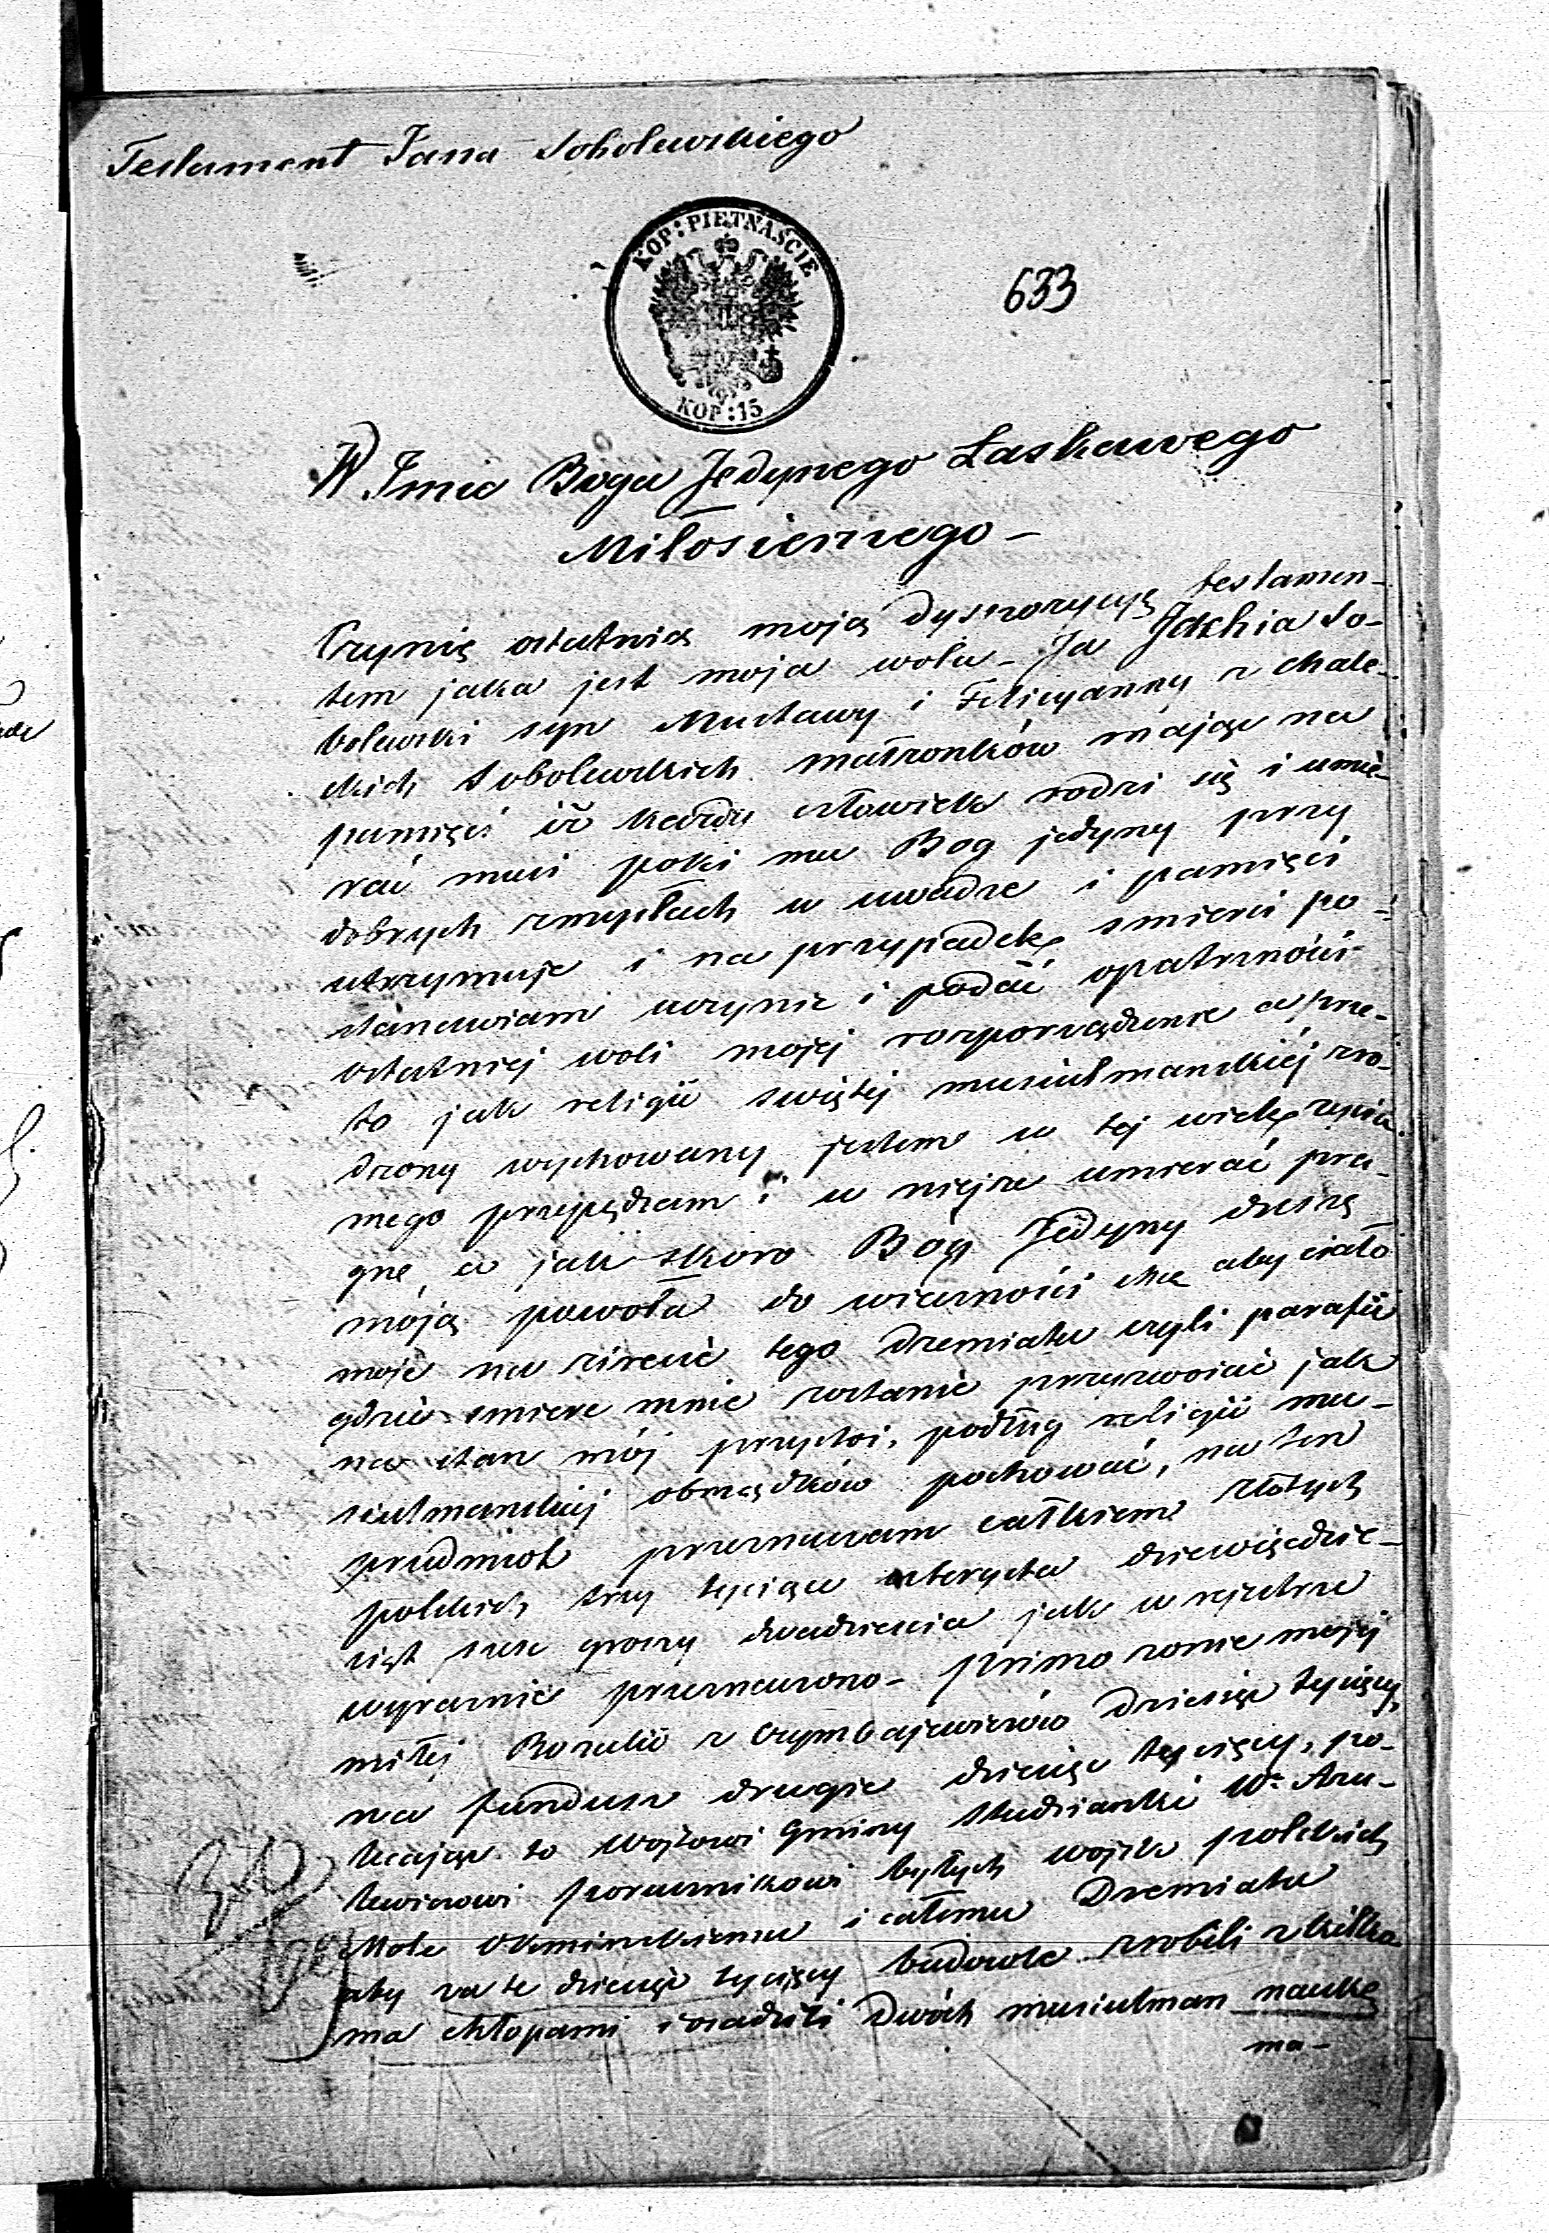 Testament Jana Sobolewskiego
KOP: PIĘTNAŚCIE
KOP: 15
633
W Imie Boga Jedynego Łaskawego
Miłosiernego –
Czynię ostatnią moją dyspozycyę testamen-
tem jaka jest moja wola – Ja Jakhia So-
bolewski syn Mustawy i Felicyanny z Chale-
ckich Sobolewskich małzonków mając na
pamięci iż każdy człowiek rodzi się i umie-
rać musi poki ma Bog jedyny przy
dobrych zmysłach w uwadze i pamięci
utrzymuje i na przypadek smierci po-
stanawiam uczynic i podać opatrzności
ostatniej woli mojej rozporządzenie a prze-
to jak religii swiętej musiulmanskiéj zro-
dzony wychowany jestem w tej wiek
mego przepędzam i w niejże umierać pra-
gnę a jak skoro Bóg Jedyny duszę
moją powoła do wieczności chcę aby ciało
moje na zirecie tego dzemiatu czyli parafii
gdzie smierc mnie zostanie przyzwoicie jak
na stan mój przystoi, podług religii mu-
siulmanskiej obrządków pochować, na ten
przedmiot przeznaczam całkiem złotych
polskich trzy tysiące czterysta dziewięćdzie-
siąt szesc groszy dwadziescia jak w rejestrze
wyraznie przeznaczono – primo zonie mojej
miłej Rozalii z Czymbajewiczów dziesięc tysięcy,
na fundusz drugie dziesięc tysięcy, po-
lecając to Wojtowi Gminy Studzianki Wu Azu-
lewiczowi porucznikowi byłych wojsk polskich
Mole Okminskiemu i całemu Dzemiatu
aby za te dziesięc tysięcy budowle zrobili z kilko-
ma chłopami i osadzili dwóch musiulman naukę
ma-